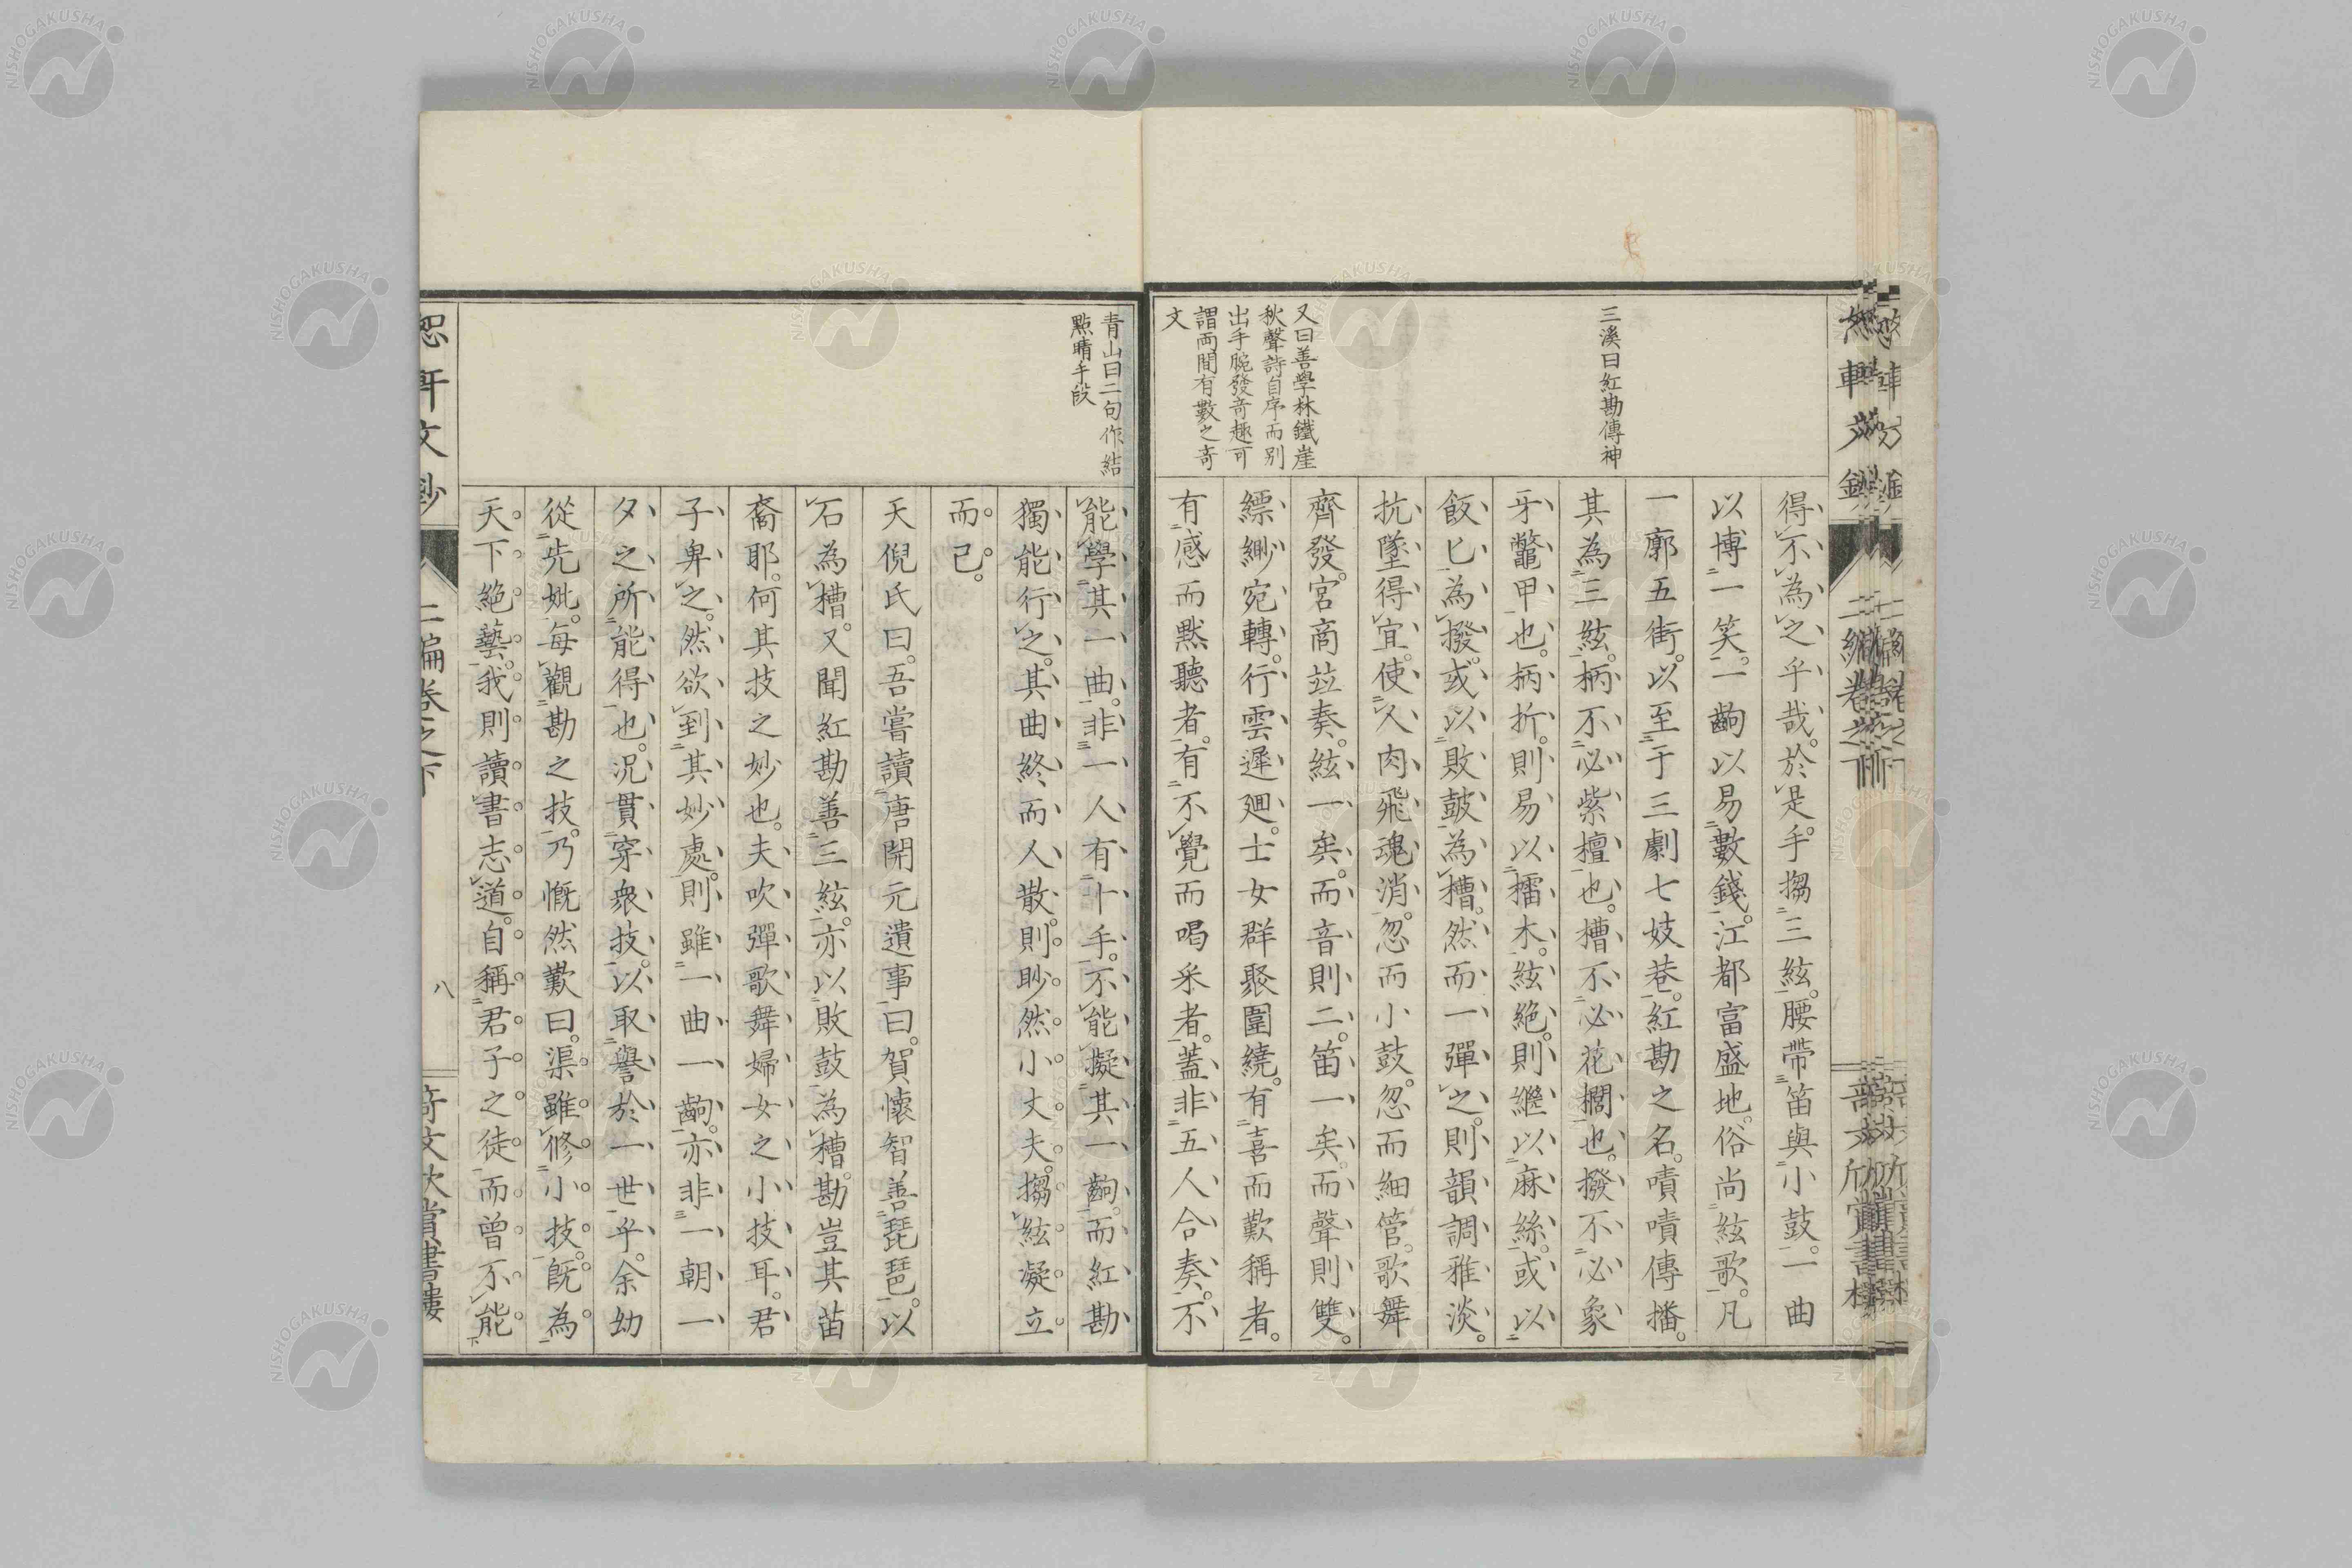 三溪曰紅勘傳神
又曰善學林鐵崖
秋聲詩自序而別
出手腕發奇趣可
謂兩間有數之奇
文
得不為之乎哉。於是乎。搊三絃。腰帶笛與小鼓。一曲
以博一笑。一齣以易數錢。江都富盛地。俗尚絃歌。凡
一廓五街。以至于三劇七妓巷。紅勘之名。嘖嘖傳播。
其為三絃。柄不必紫檀也。槽不必花櫚也。撥不必象
牙鼈甲也。柄折。則易以櫺木。絃絶。則繼以麻絲。或以
飯匕為撥。或以敗鼓為槽。然而一彈之。則韻調雅淡。
抗墜得宜。使人肉飛魂消。忽而小鼓。忽而細管。歌舞
齊發。宮商竝奏。絃一矣。而音則二。笛一矣。而聲則雙。
縹緲宛轉。行雲遲廻。士女群聚圍繞。有喜而歎稱者。
有感而默聽者。有不覺而喝釆者。蓋非五人合奏。不
青山曰二句作結
點睛手段
能學其一曲。非一人有十手。不能擬其一齣。而紅勘
獨能行之。其曲終而人散。則眇然小丈夫。搊絃凝立
而已。
天倪氏曰。吾嘗讀唐開元遺事曰。賀懷智善琵琶。以
石為槽。又聞紅勘善三絃。亦以敗鼓為槽。勘豈其苗
裔耶。何其技之妙也。夫吹彈歌舞婦女之小技耳。君
子卑之。然欲到其妙處。則雖一曲一齣。亦非一朝一
夕之所能得也。況貫穿衆技。以取譽於一世乎。余幼
從先妣。每觀勘之技。乃慨然歎曰。渠雖修小技。既為
天下絶藝。我則讀書志道。自稱君子之徒而曾不能
恕軒文鈔
二編卷之下
八
奇文欣賞書樓